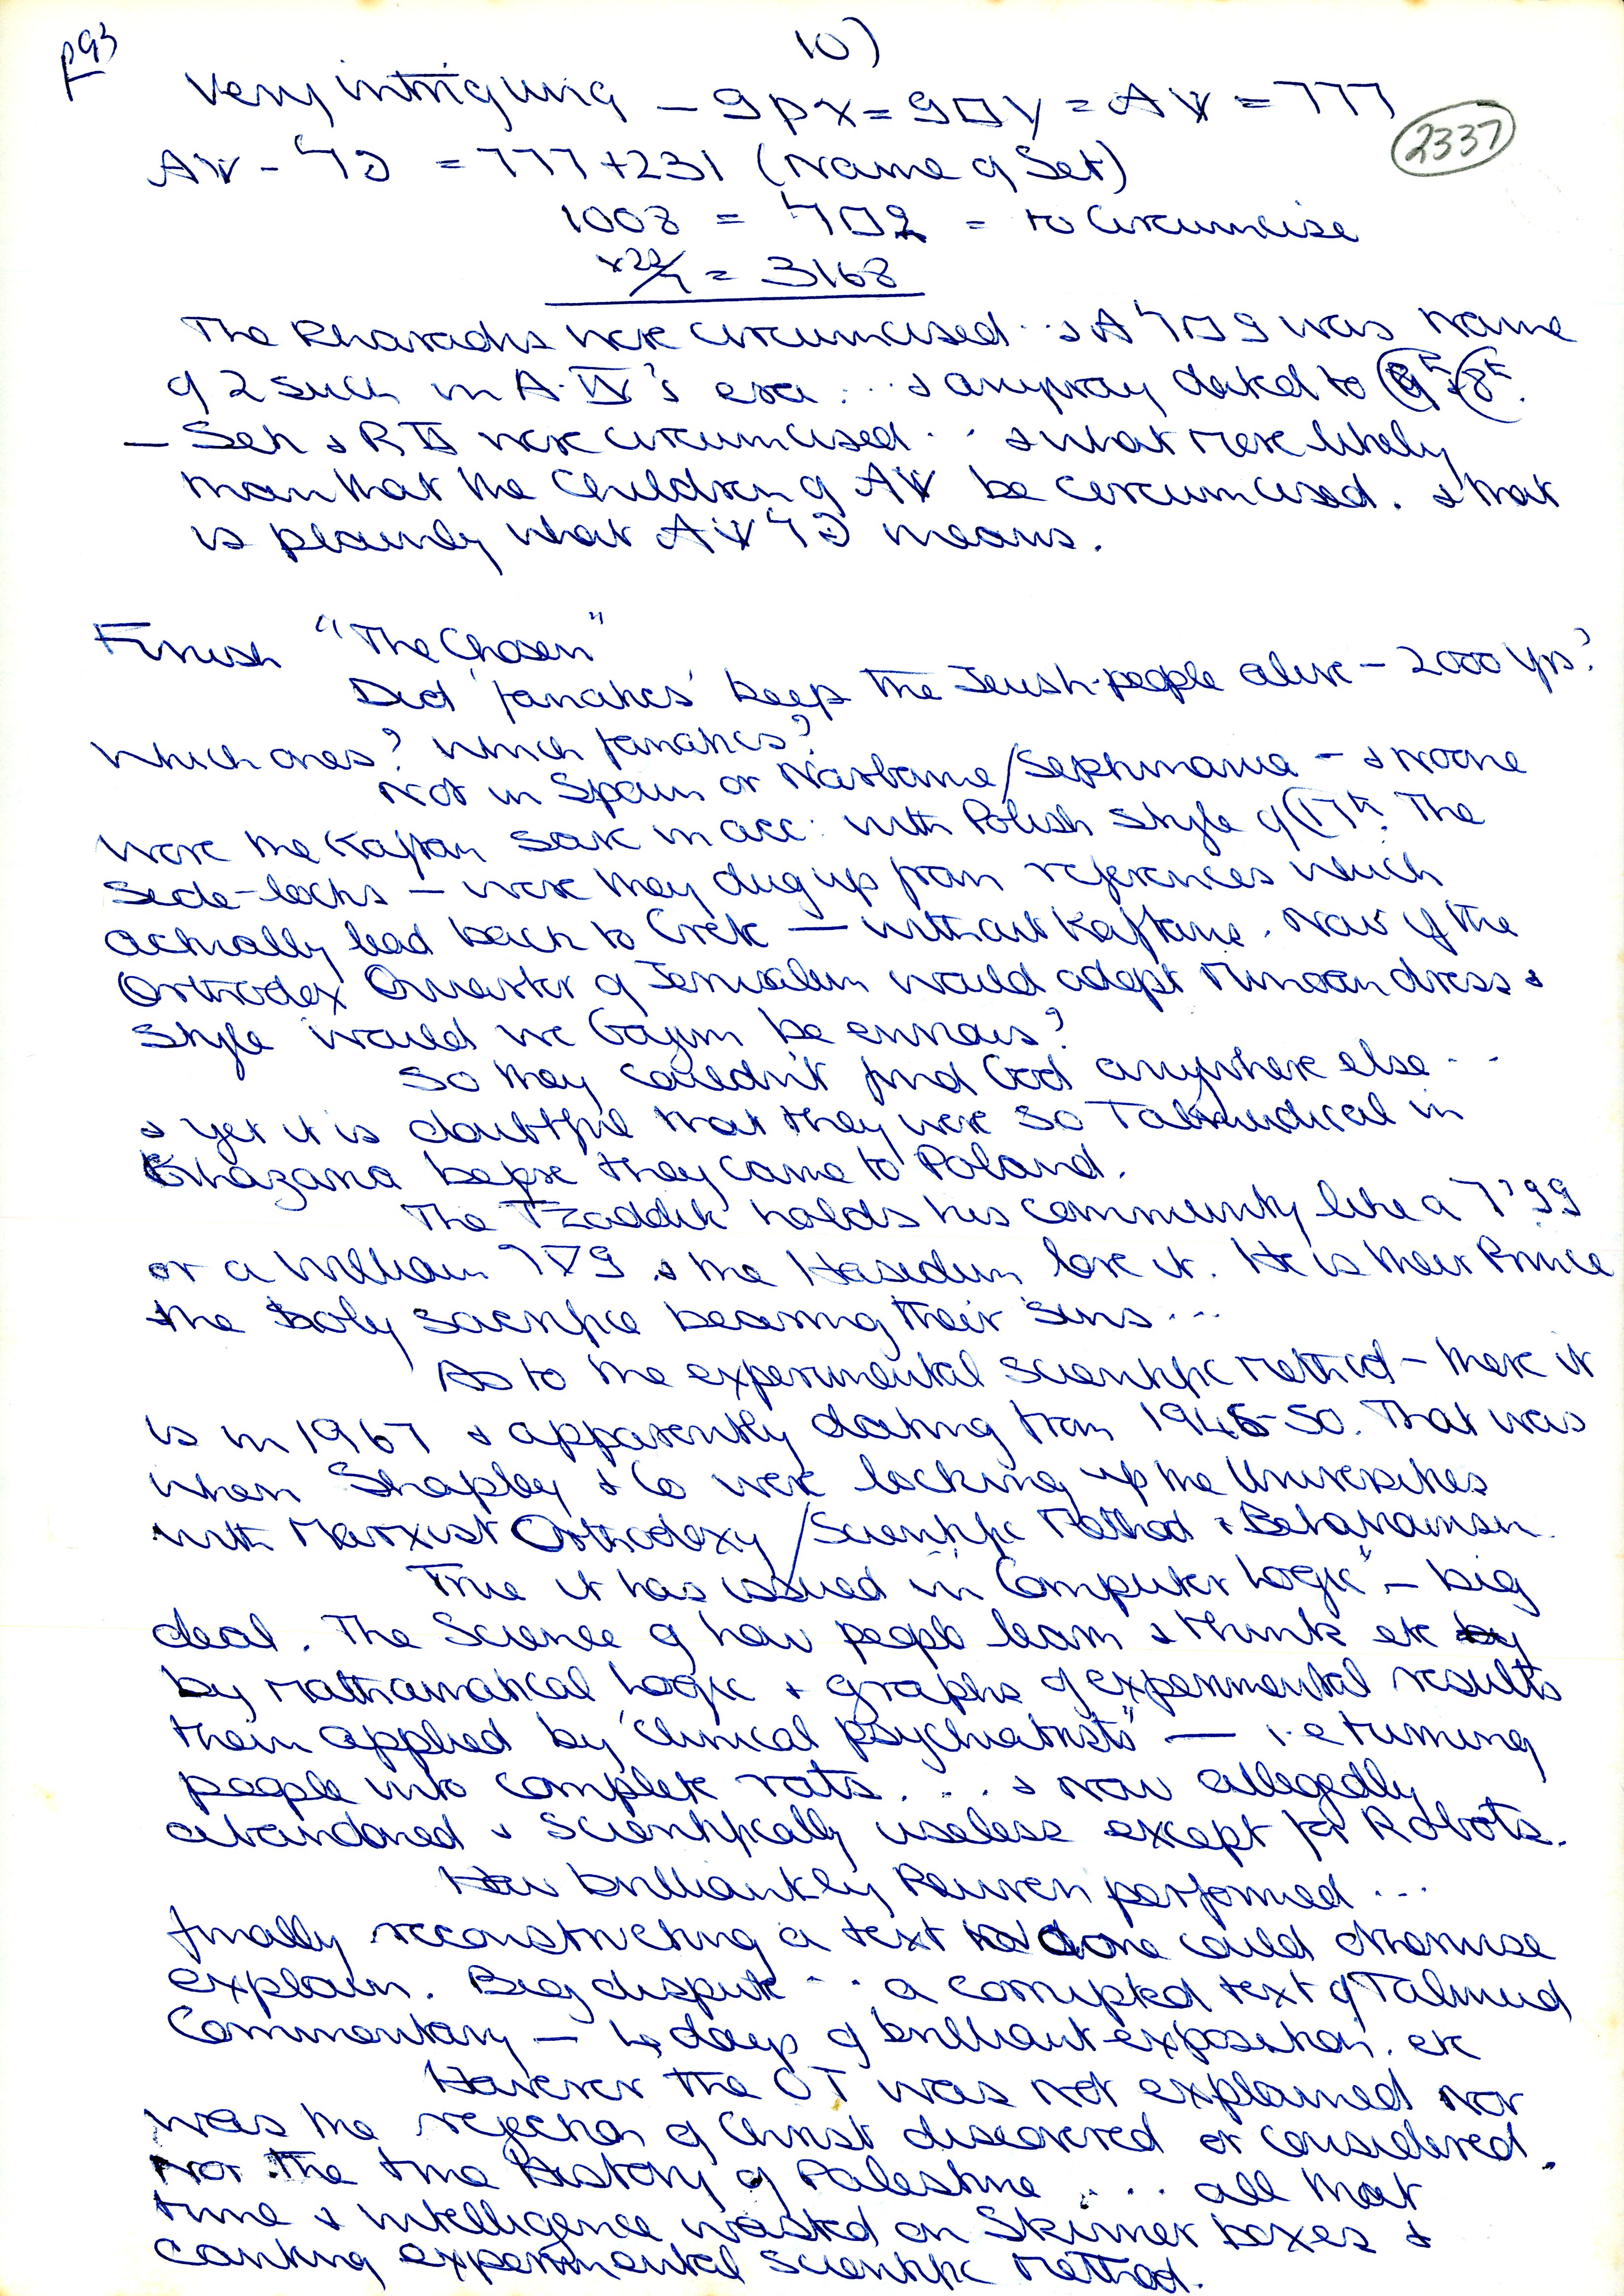 p93
10)
Very intriguing — = 777
2337
= 777 + 231 (Name of Set)
1008 = = to Circumcise
x 22/7 = 3168
The Pharaohs were circumcised .. & was name
of 2 such in A. IV's era ... & anyway dated to
— Seti & R II were circumcised .. & what more likely
than that the Children of be circumcised. & that
is plainly what means.
Finish "The Chosen"
Did 'fanatics' keep the Jewish people alive — 2000 yrs?
Which ones? Which fanatics?
Not in Spain or Narbonne/Septimania — & no one
wore the Kaftan save in acc: with Polish style of 17th. The
side-locks — were they dug up from references which
actually lead back to Crete — without Kaftans. Now if the
Orthodox Quarter of Jerusalem would adopt Minoan dress &
style would we Goyim be envious?
So they couldn't find God anywhere else ..
& yet it is doubtful that they were so Talmudical in
Khazaria before they came to Poland.
The Tzaddik holds his community like a
or a William & the Hasedim love it. He is their Prince
the holy sacrifice bearing their sins ...
As to the experimental scientific method — there it
is in 1967 & apparently dating from 1945-50. That was
when Shapley & Co were locking up the Universities
with Marxist Orthodoxy/Scientific Method & Behaviourism.
True it has issued in "Computer Logic" — big
deal. The Science of how people learn & think etc
by mathematical logic + graphs of experimental results
then applied by "clinical psychiatrists" — i.e turning
people into complete rats ... & now allegedly
abandoned & scientifically useless except for Robots.
How brilliantly Reuven performed ...
finally reconstructing a text no one could otherwise
explain. Big dispute .. a corrupted text of Talmud
Commentary — 4 days of brilliant exposition. etc
However the OT was not explained nor
was the rejection of Christ discovered or considered.
Nor the true History of Palestine ... all that
time & intelligence wasted on Skinner boxes &
canting experimental scientific method.